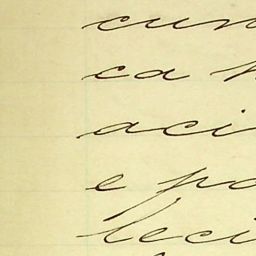 cun
ca
aci
e po
leci